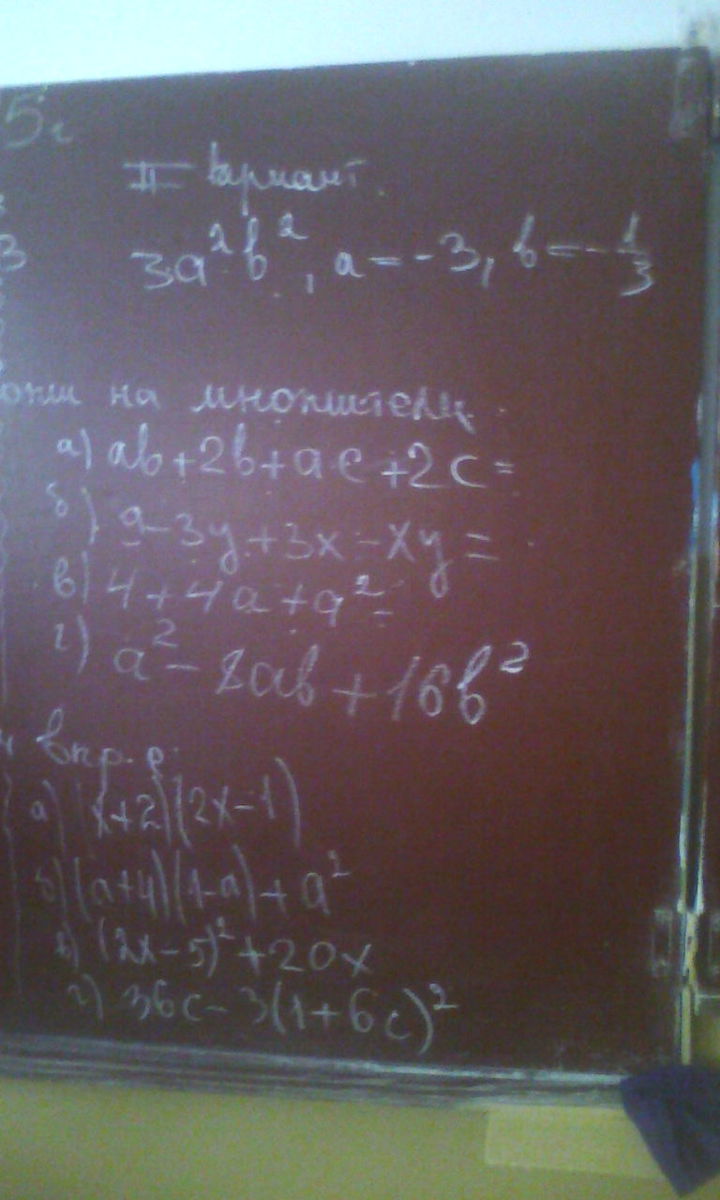 5г
II вариант.
3
3a²b², a=-3, b=-1/3
ожи на множители
а) ab+2b+ac+2c=
б) 9-3y+3x-xy=
в) 4+4a+a²=
г) a²-8ab+16b²
впр-е
а) (x+2)(2x-1)
б) (a+4)(1-a)+a²
в) (2x-5)²+20x
г) 36c-3(1+6c)²